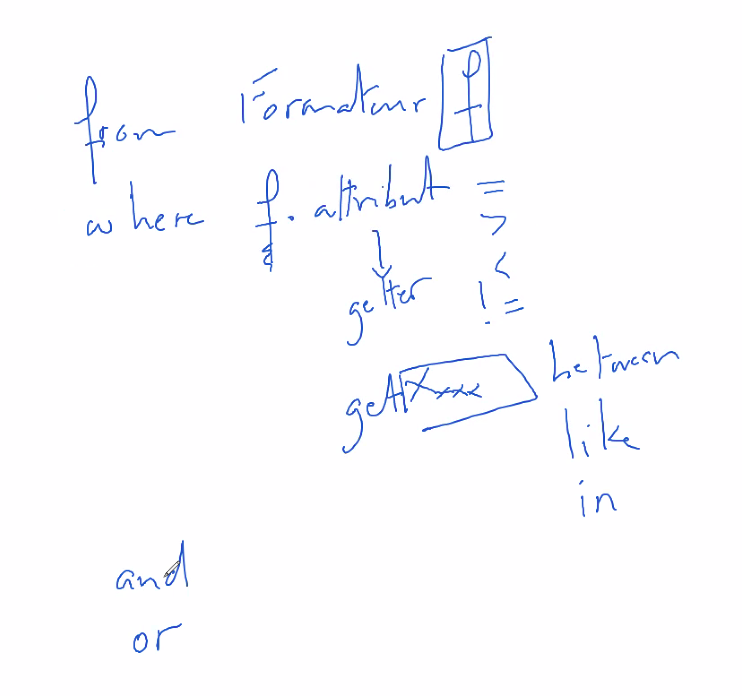 from Formateur f
where f.attribut =
>
<
getter !=
getXxxxx between
like
in
and
or